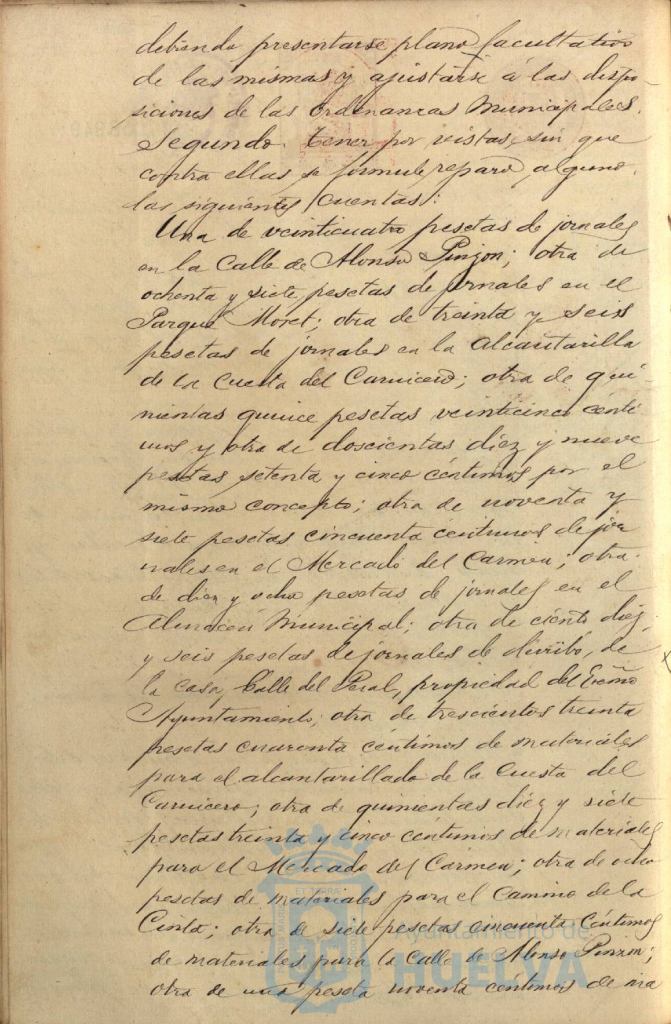 debiendo presentarse plano facultativo
de las mismas y ajustarse á las dispo-
siciones de las Ordenanzas Municipales.
Segundo. Tener por vistas, sin que
contra ellas se formule reparo alguno,
las siguientes cuentas:
Una de veinticuatro pesetas de jornales
en la Calle de Alonso Pinzon; otra de
ochenta y siete pesetas de jornales en el
Parque Moret; otra de treinta y seis
pesetas de jornales en la Alcantarilla
de la Cuesta del Carnicero; otra de qui-
nientas quince pesetas veinticinco cénti
mos y otra de doscientas diez y nueve
pesetas setenta y cinco céntimos por el
mismo concepto; otra de noventa y
siete pesetas cincuenta céntimos de jor
nales en el Mercado del Carmen; otra
de diez y ocho pesetas de jornales en el
Almacen Municipal; otra de ciento diez
y seis pesetas de jornales de derribo, de
la casa, Calle del Peral, propiedad del Excmo
Ayuntamiento; otra de trescientos treinta
pesetas cuarenta céntimos de materiales
para el alcantarillado de la Cuesta del
Carnicero; otra de quinientas diez y siete
pesetas treinta y cinco céntimos de materiales
para el Mercado del Carmen; otra de ocho
pesetas de materiales para el Camino de la
Cinta; otra de siete pesetas cincuenta céntimos
de materiales para la Calle de Alonso Pinzon;
otra de una peseta noventa céntimos de ma
Ayuntamiento de
HUELVA